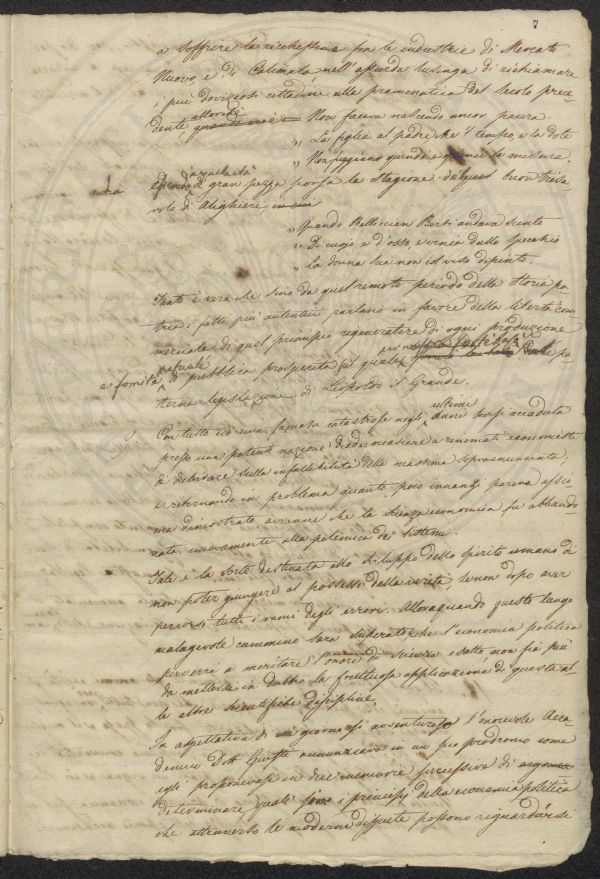 7
a soffrire la ricchissima fra le industrie di Mercato
Nuovo, e di Calimala nell'assurda lusinga di richiamare
i più doviziosi cittadini alla pramenatica del secolo prece-
dente allorchè Non faceva nascendo ancor paura
" La figlia al padre che 'l tempo, e la dote
" Non fuggiano quindi e quinci la misura.
che di gran pezza scorsa la stagione di quel buon trisa
volo di Alighiere in cui
" Quando Bellincion Berti andava cinto
" Di cuojo e d'osso, e venia dallo specchio
" La donna sua non col viso dipinto.
Tanto è vero che sino da quel remoto periodo della storia pa
tria i fatti più autentici parlano in favore della libertà com
merciale di quel principio regeneratore di ogni produzione
naturale
e fomite di pubblica prosperità sul quale pa
terna legislazione di Leopoldo il Grande.
Contutto ciò una famosa catastrofe negli ultimi anni scorsi accaduta
presso una potente nazione diede occasione a rinomati economisti
di dubitare sulla infallibilità della massima sopraenunciata,
e ritornando in problema quanto poco innanzi pareva assio-
ma dimostrato avvenne che la scienza economica fu abbando-
nata nuovamente alla polemica dei sistemi.
Tale è la sorte destinata allo sviluppo dello spirito umano di
non poter giungere al possesso della verità se non dopo aver
percorsi tutti i rami degli errori. Alloraquando questo lungo
malagevole cammino sarà superato che l'economia politica
perverrà a meritare l'onore di scienza esatta non fia più
da mettersi in dubbio la fruttuosa applicazione di questa al
le altre scientifiche discipline.
In aspettativa di un giorno sì avventuroso l'onorevole Acca
demico Dott. Giusti annunziava in un suo prodromo come
egli proponevasi in due memorie successive di
determinare quali sieno i principj della economia politica
che attraverso le moderne dispute possono riguardarsi